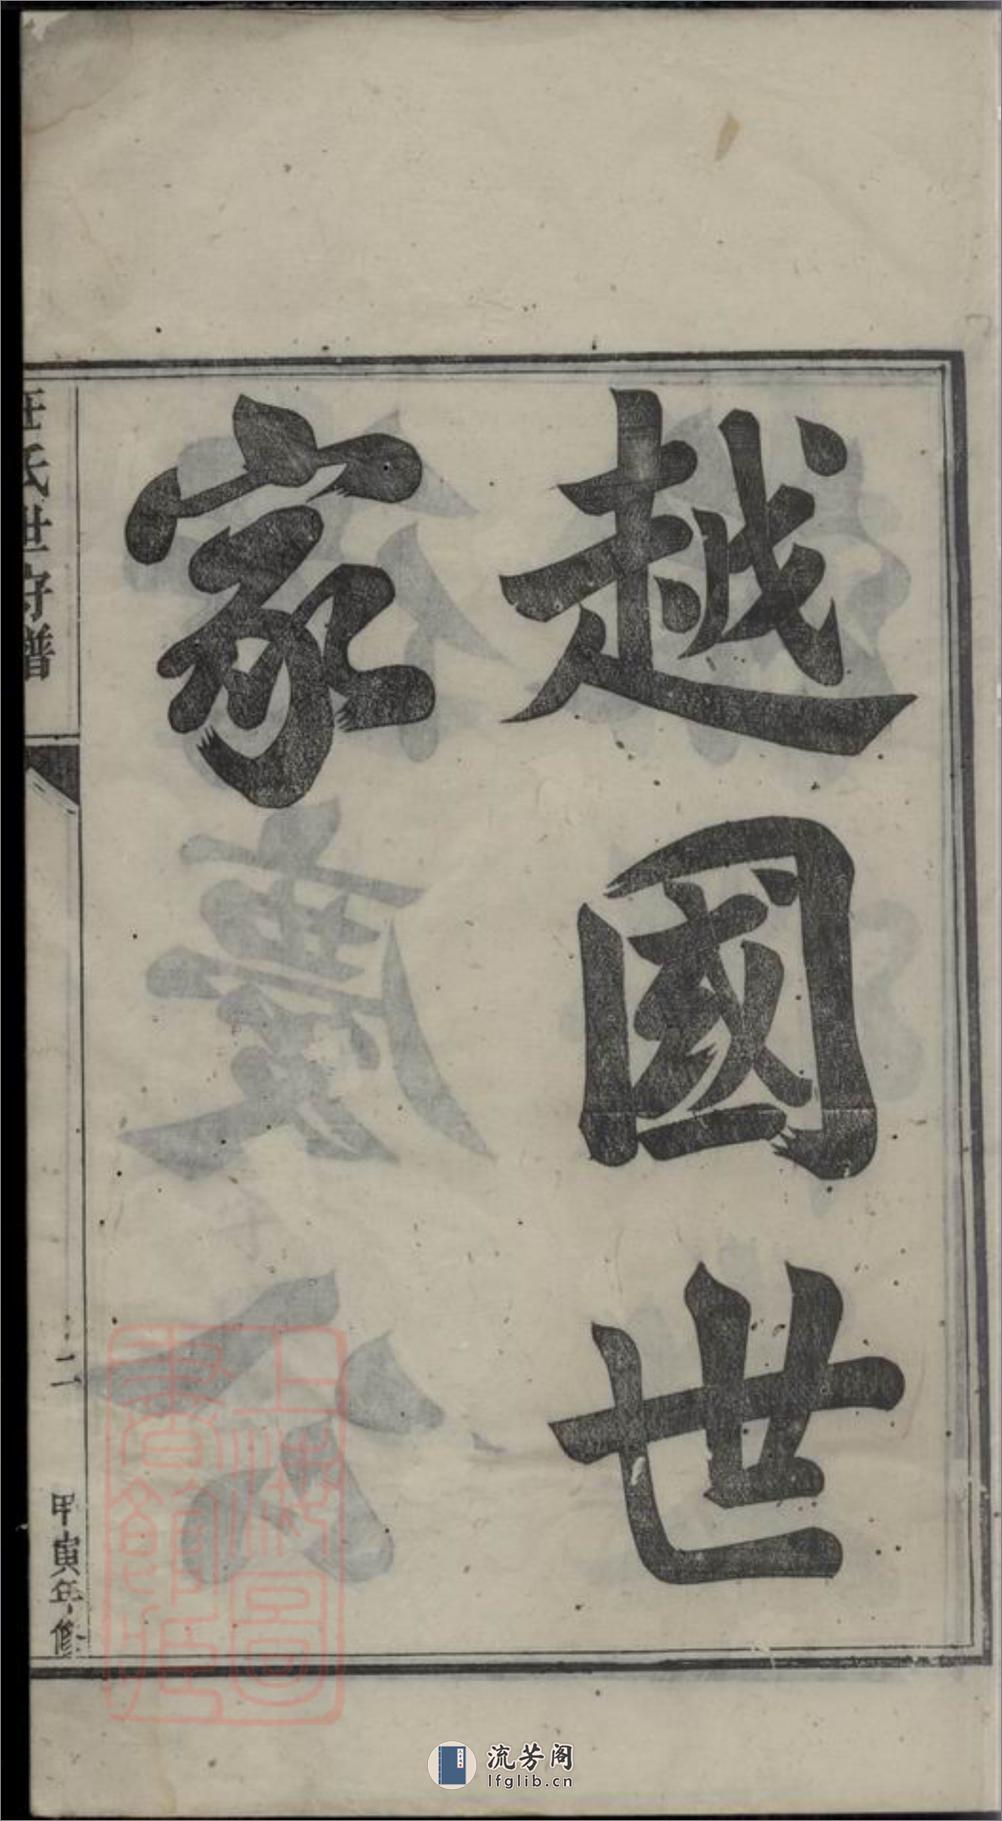 越國世
家
汪氏世守譜
二
甲寅年修
上海圖
書館藏
流芳阁
lfglib.cn